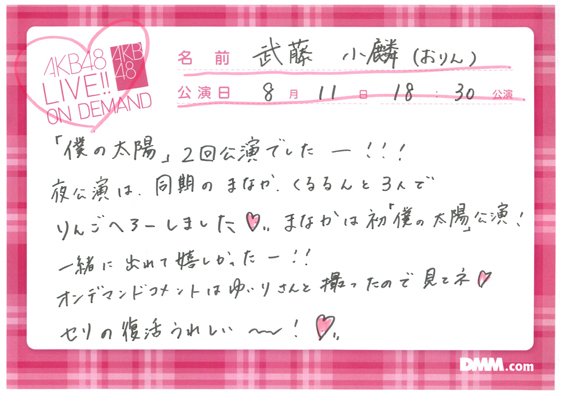 AKB48
LIVE!!
ON DEMAND
AKB
48
名前 武藤 小麟(おりん)
公演日 8月11日 18:30公演
「僕の太陽」2回公演でしたー!!!
夜公演は、同期のまなか、くるるんと3人で
りんごへろーしました♡‥ まなかは初「僕の太陽」公演!
一緒に出れて嬉しかったー!!
オンデマンドコメントはゆいりさんと撮ったので見てネ♡
セリの復活うれしい〜!♡‥
DMM.com